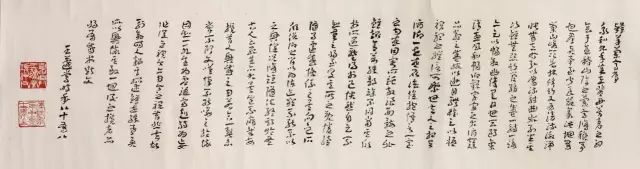 永和九年歲在癸丑暮春之初
會于會稽山陰之蘭亭脩禊事
也群賢畢至少長咸集此地有
崇山峻領茂林脩竹又有清流激湍
映帶左右引以為流觴曲水列坐其
次雖無絲竹管弦之盛一觴一詠
亦足以暢敘幽情是日也天朗氣
清惠風和暢仰觀宇宙之大俯察
品類之盛所以遊目騁懷足以極
視聽之娛信可樂也夫人之相與
俯仰一世或取諸懷抱悟言一室
之內或因寄所託放浪形骸之外
雖趣舍萬殊靜躁不同當其欣
於所遇暫得於己快然自足不
知老之將至及其所之既倦情
隨事遷感慨係之矣向之所欣
俛仰之間以為陳迹猶不能不以
之興懷況脩短隨化終期於盡
古人云死生亦大矣豈不痛哉每
攬昔人興感之由若合一契未
嘗不臨文嗟悼不能喻之於懷
固知一死生為虛誕齊彭殤為妄
作後之視今亦由今之視昔悲夫故
列敘時人錄其所述雖世殊事異
所以興懷其致一也後之攬者亦
將有感於斯文
時年八十